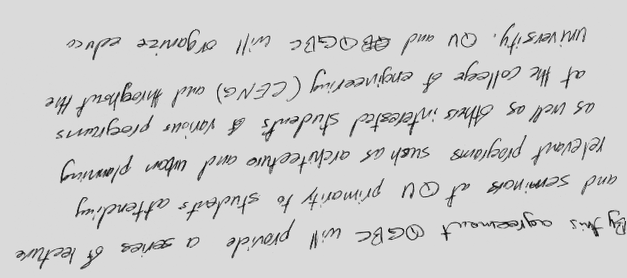 By this agreement QGBC will provide a series of lecture
and seminars at QU primarity to students attending
relevant programs such as architecture and urban planning
as well as others interested students of various programs
at the college of engineering (CENG) and throughout the
university. QU and QGBC will organize educa